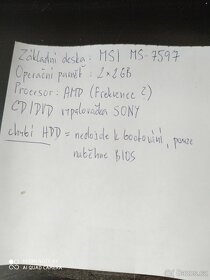 Základní deska: MSI MS-7597
Operační paměť: 2×2GB
Procesor: AMD (Frekvence ?)
CD/DVD vypalovačka SONY
chybí HDD = nedojde k bootování, pouze
naběhne BIOS
REDMI NOTE 8 PRO
AI QUAD CAMERA